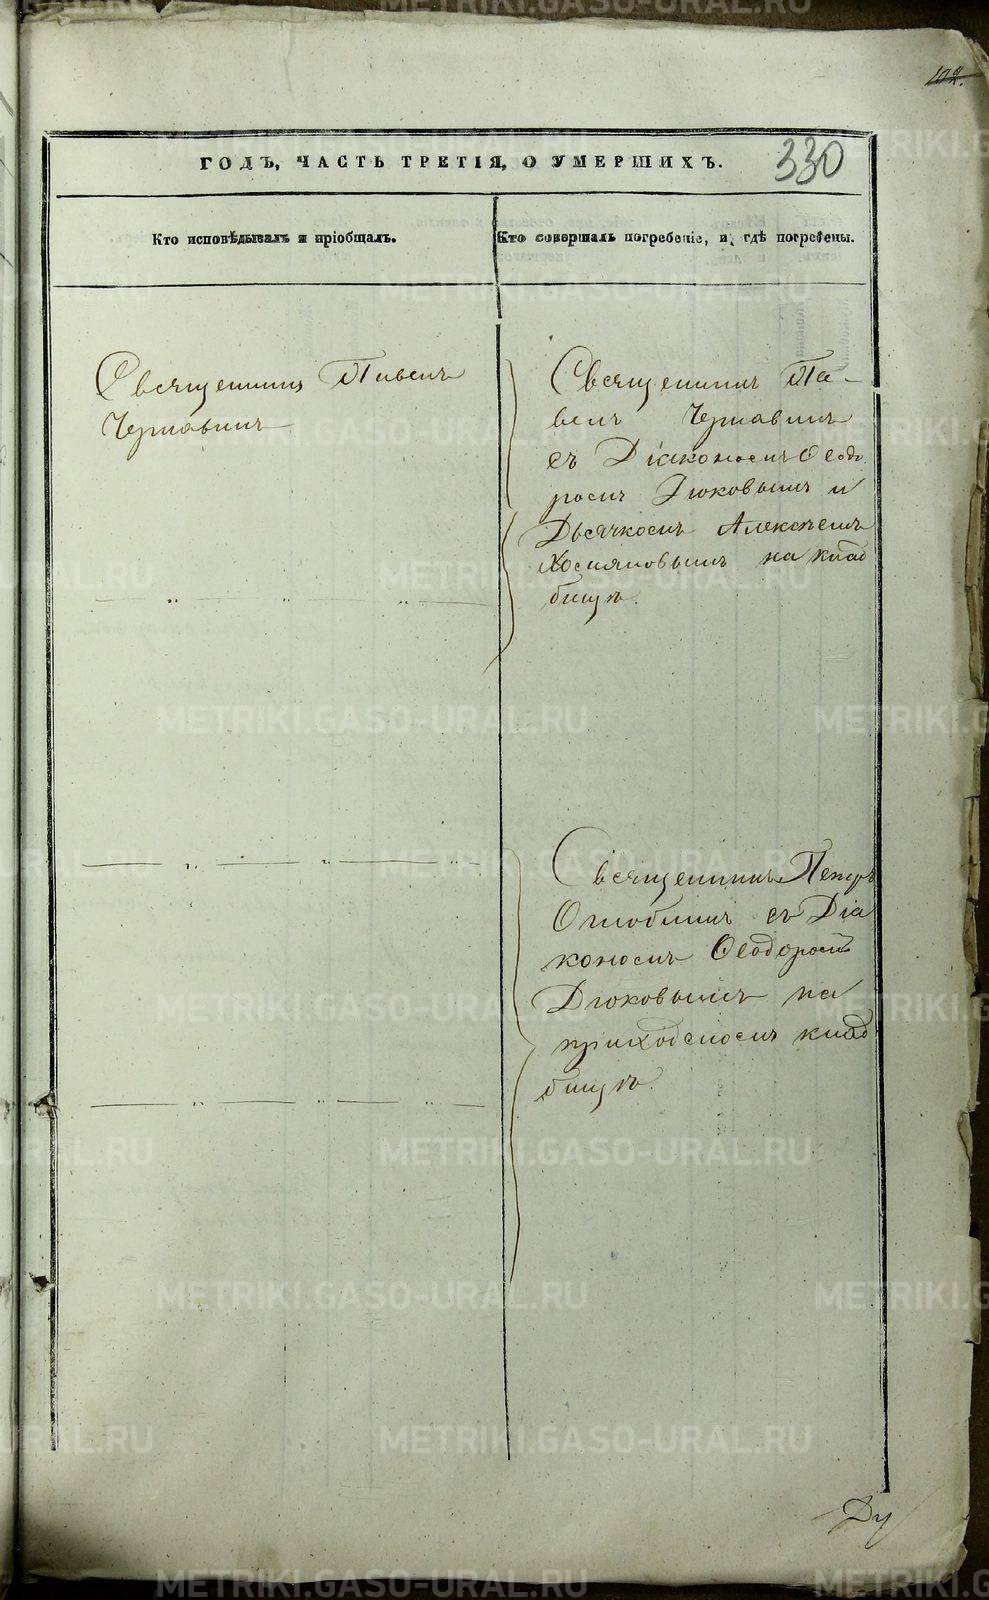 102.
330
ГОДЪ, ЧАСТЬ ТРЕТІЯ, О УМЕРШИХЪ.
Кто исповѣдывалъ и пріобщалъ.
Кто совершалъ погребеніе, и гдѣ погребены.
Священникъ Павелъ
Чернавинъ
Священникъ Па-
велъ Чернавинъ
съ Діакономъ Ѳеодо
ромъ Дюковымъ и
Дьячкомъ Алексѣемъ
на клад
бищѣ.
Священникъ Петръ
Оглоблинъ съ Діа
кономъ Ѳеодоромъ
Дюковымъ на
приходскомъ клад
бищѣ.
Ду
METRIKI.GASO-URAL.RU